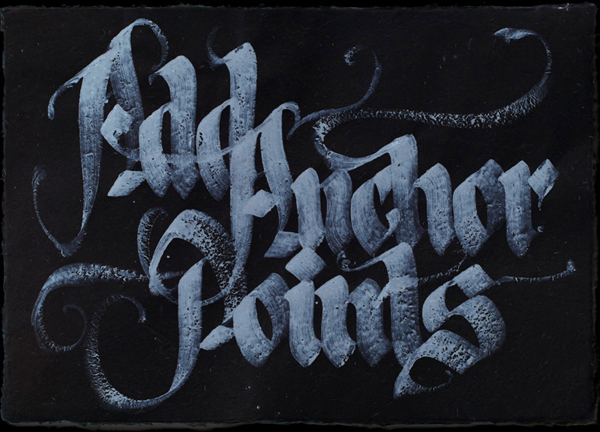 Add
Anchor
Points